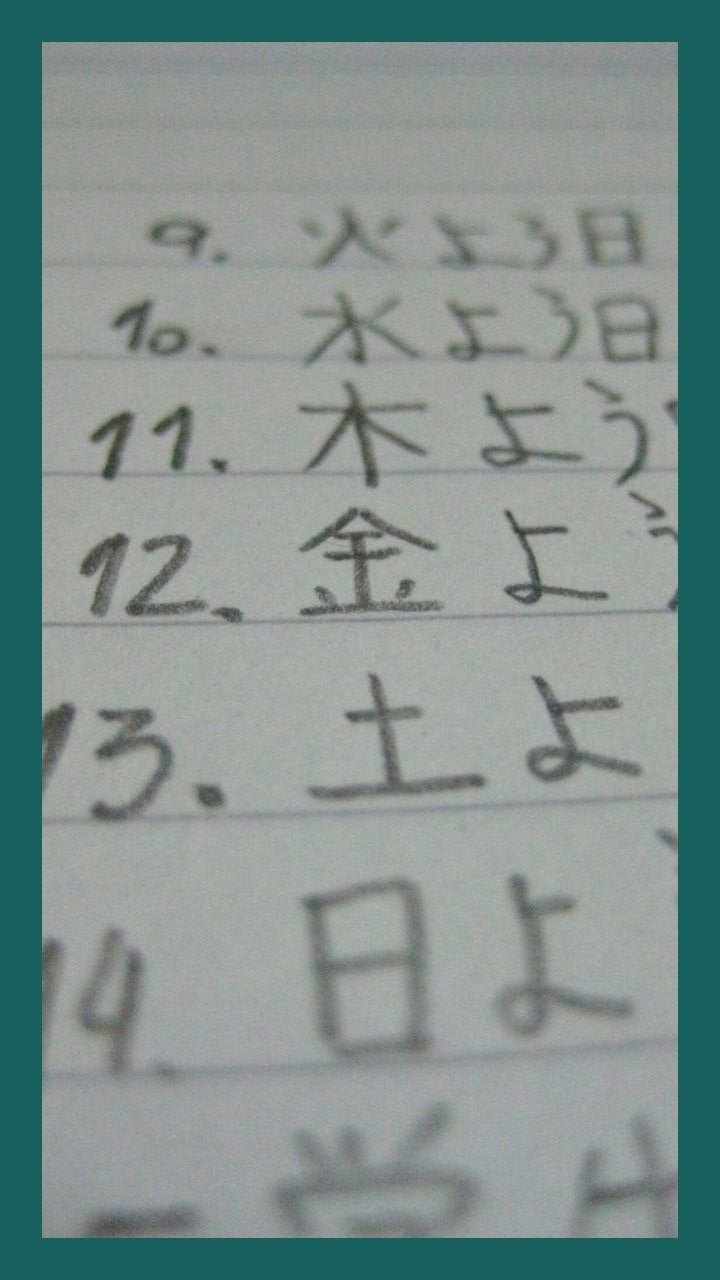 9. 火よう日
10. 水よう日
11. 木よう
12. 金よう
13. 土よ
14. 日よ